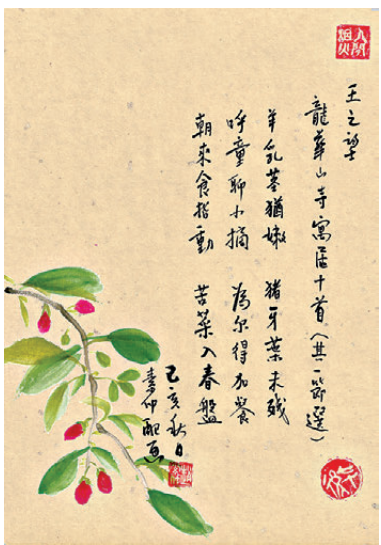 人間烟火
王之望
龍華山寺寓居十首（其一節選）
羊乳茎猶嫩 猪牙葉未残
呼童聊小摘 為尔得加餐
朝來食指動 苦菜入春盤
己亥秋日
仲配画